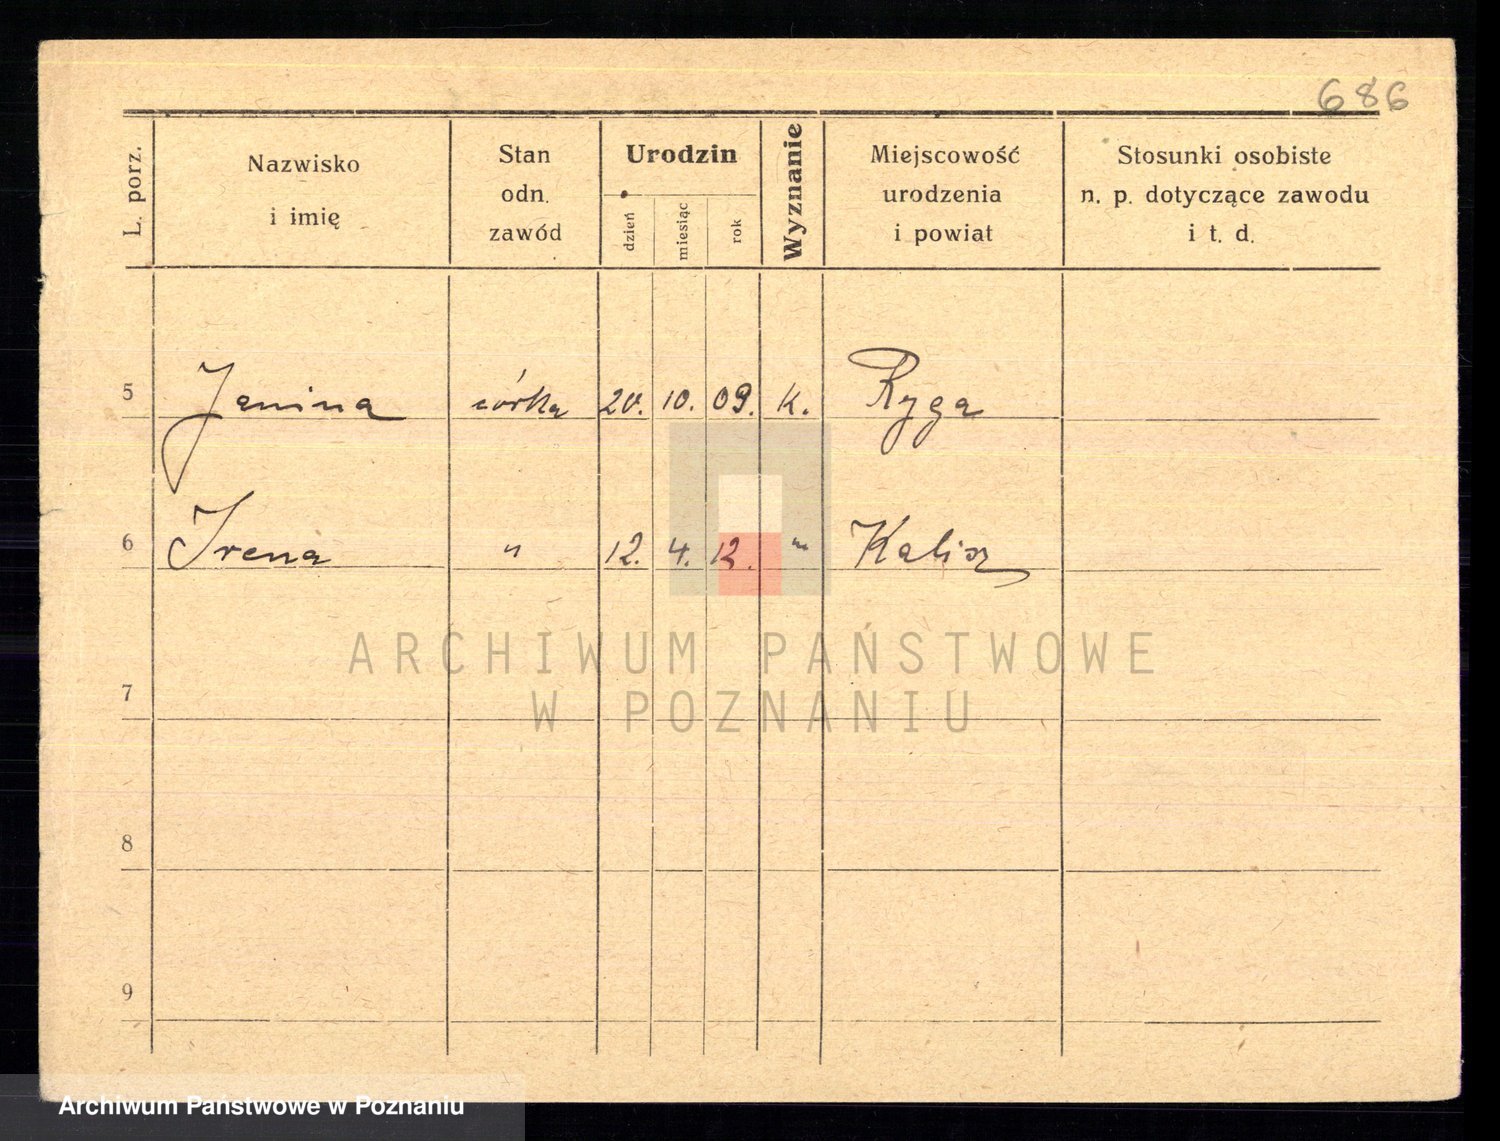 686
L. porz.
Nazwisko
i imię
Stan
odn.
zawód
Urodzin
dzień
miesiąc
rok
Wyznanie
Miejscowość
urodzenia
i powiat
Stosunki osobiste
n. p. dotyczące zawodu
i t. d.
5 Janina córka 20. 10. 09. K. Ryga
6 Irena " 12. 4. 12. " Kalisz
7
8
9
ARCHIWUM PAŃSTWOWE
W POZNANIU
Archiwum Państwowe w Poznaniu